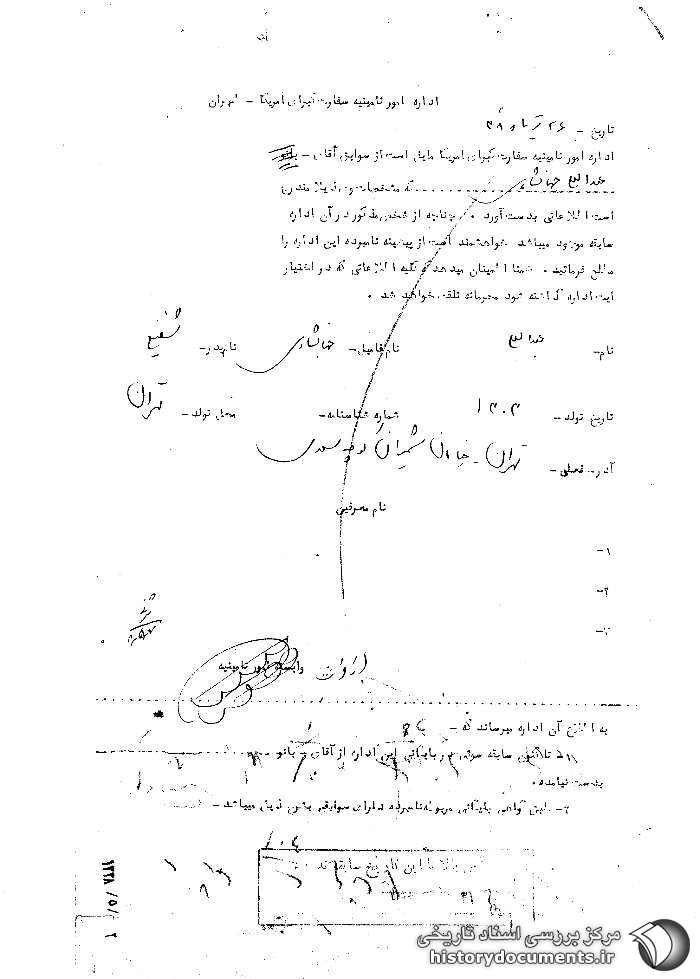 اداره امور تامینیه سفارت کبرای امریکا - تهران
تاریخ - ۲۶ تیر ماه ۳۸
اداره امور تامینیه سفارت کبرای امریکا مایل است از سوابق آقای - بانو
که مشخصات وی ذیلا مندرج
است اطلاعاتی بدست آورد . چنانچه از شخص مذکور در آن اداره
سابقه موجود میباشد خواهشمند است از پیشینه نامبرده این اداره را
مطلع فرمائید . ضمنا اطمینان میدهد که کلیه اطلاعاتی که در اختیار
این اداره گذاشته شود محرمانه تلقی خواهد شد .
نام - نام فامیل - نام پدر - شفیع
تاریخ تولد - ۱۳۰۳ شماره شناسنامه - محل تولد - تهران
آدرس فعلی - تهران - خیابان شمیران کوچه سعدی
نام معرفین
۱-
۲-
۳-
وابسته امور تامینیه
به اطلاع آن اداره میرساند که -
تاکنون سابقه سوئی در بایگانی این اداره از آقای - بانو
بدست نیامده .
۲- طبق گواهی بایگانی مربوطه نامبرده دارای سوابقی بشرح ذیل میباشد -
بالا تا این تاریخ سابقه ندارد
۱۳۳۸/۵/۲
مرکز بررسی اسناد تاریخی
historydocuments.ir